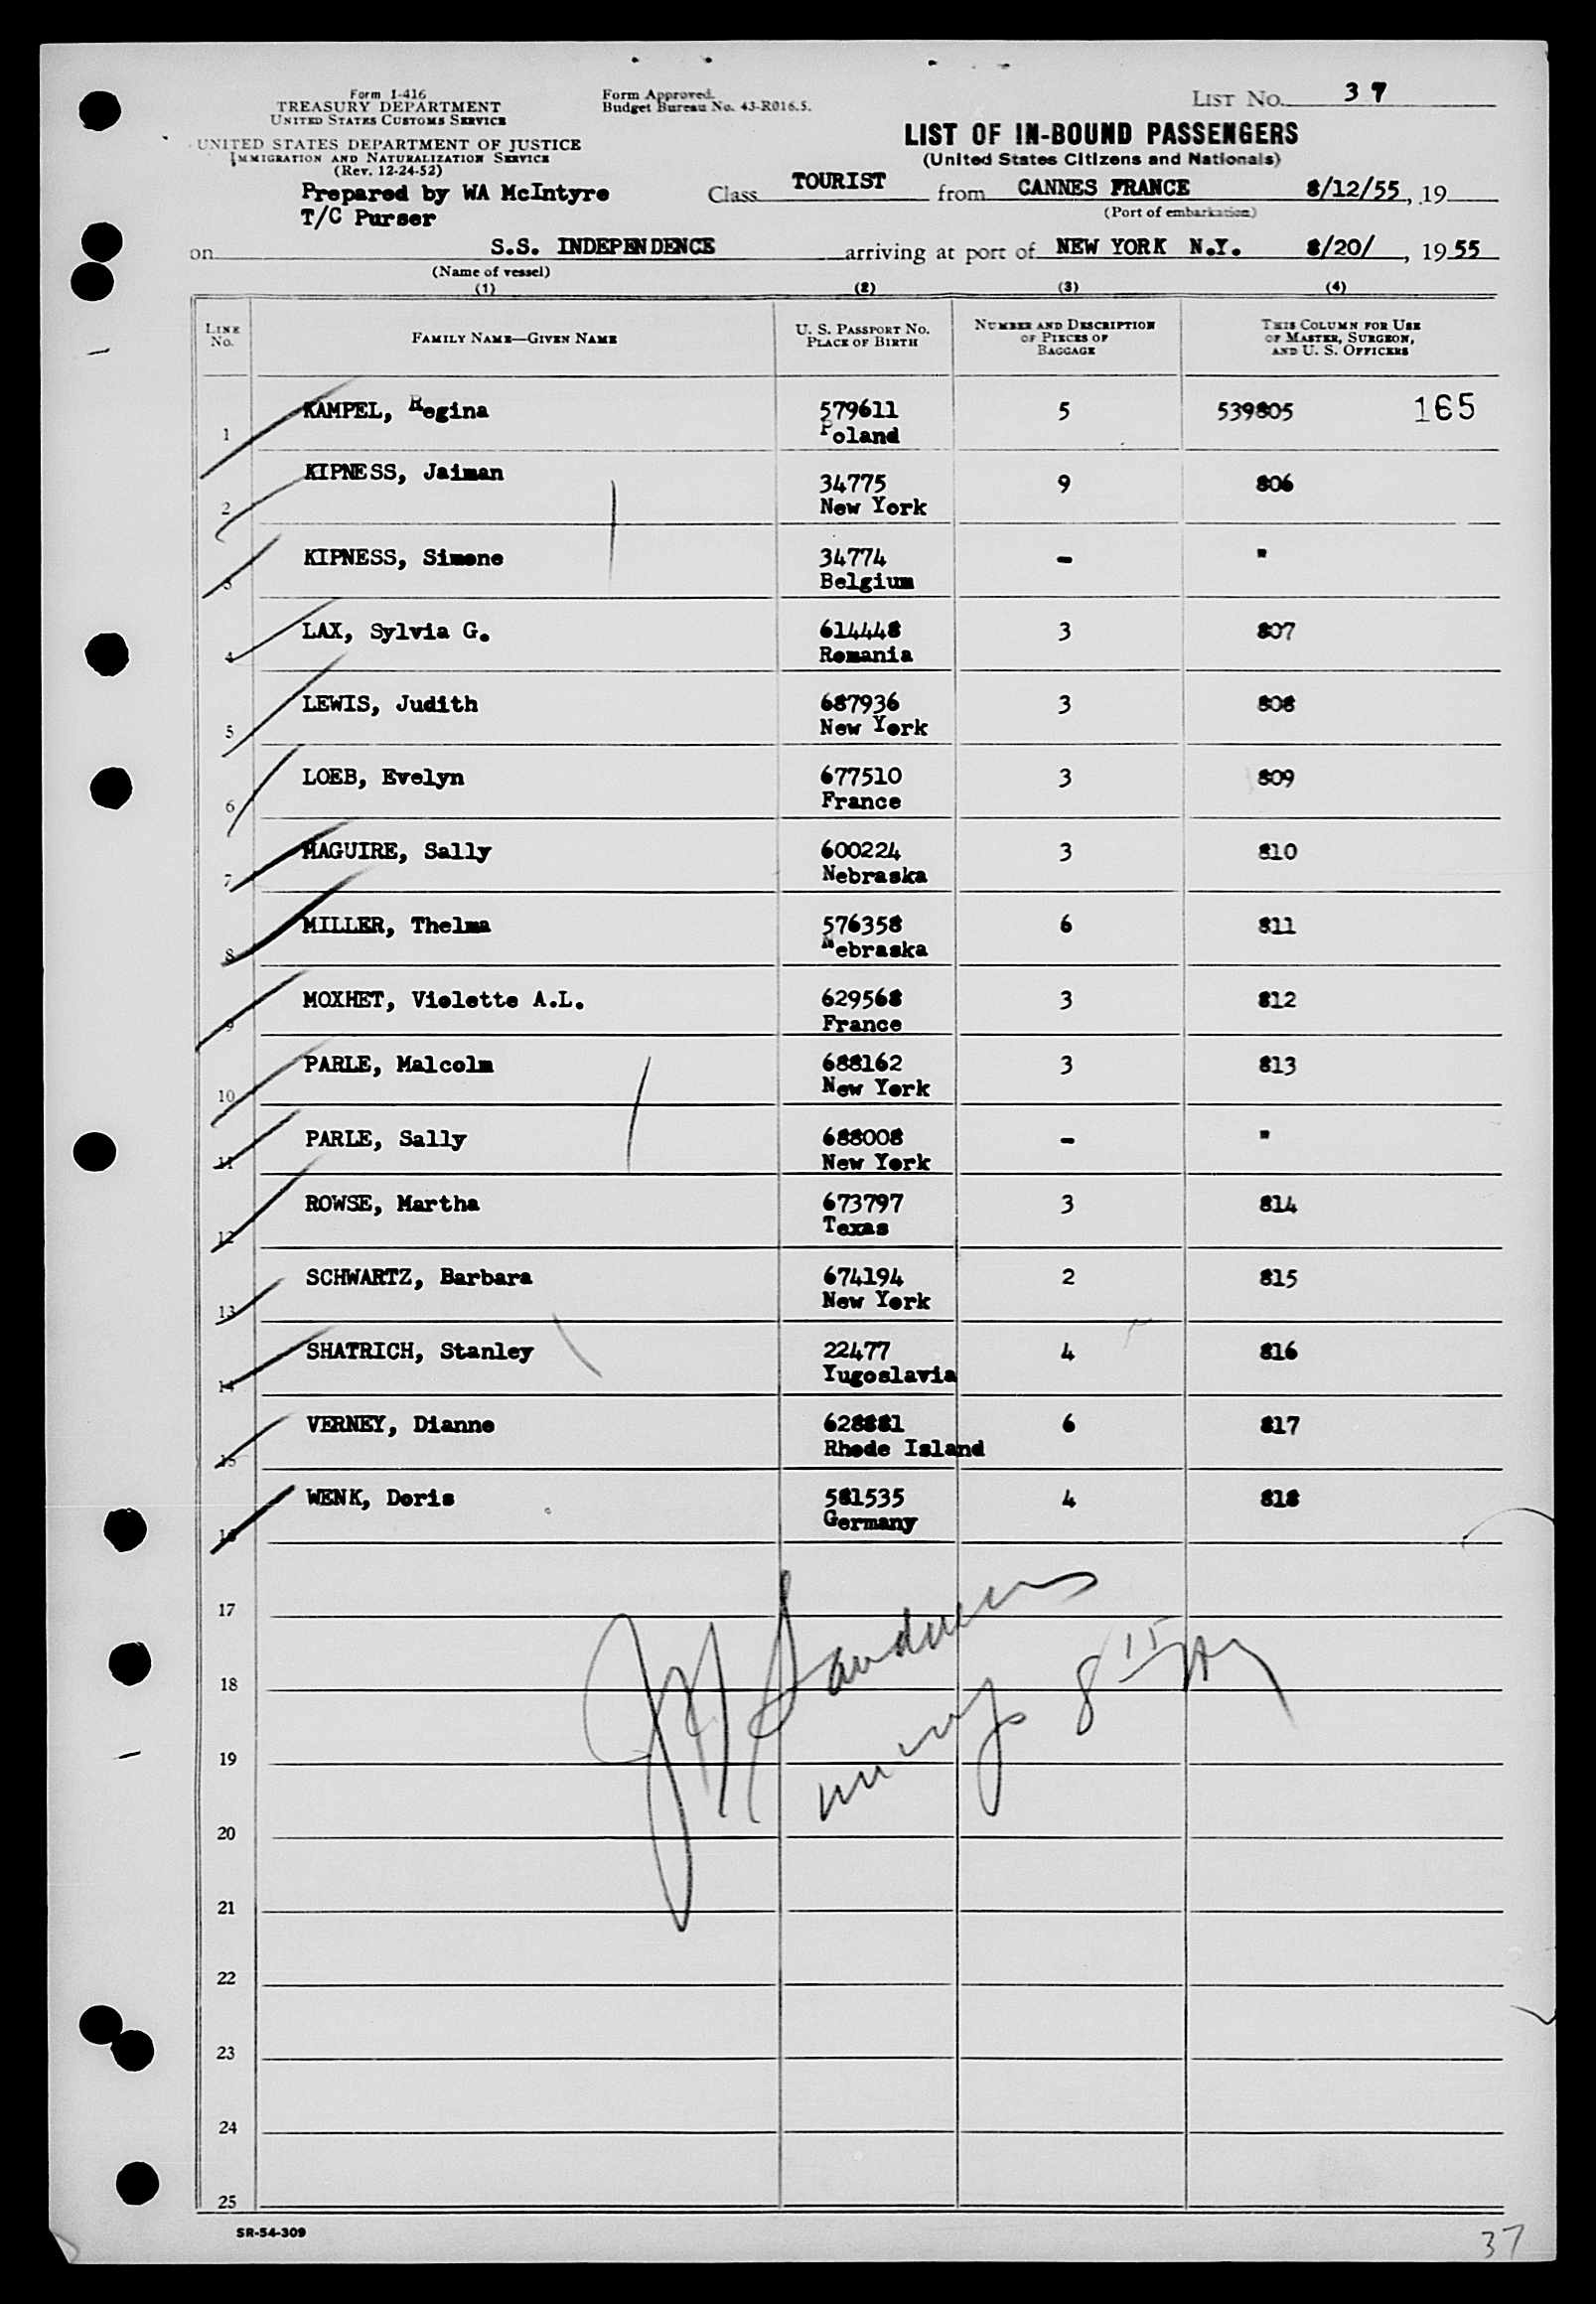 Form I-416
TREASURY DEPARTMENT
UNITED STATES CUSTOMS SERVICE
UNITED STATES DEPARTMENT OF JUSTICE
IMMIGRATION AND NATURALIZATION SERVICE
(Rev. 12-24-52)
Prepared by WA McIntyre
T/C Purser
Form Approved.
Budget Bureau No. 43-R016.5.
LIST NO. 37
LIST OF IN-BOUND PASSENGERS
(United States Citizens and Nationals)
Class TOURIST from CANNES FRANCE 8/12/55, 19
(Port of embarkation)
on S.S. INDEPENDENCE arriving at port of NEW YORK N.Y. 8/20/, 1955
(Name of vessel)
(1) (2) (3) (4)
LINE NO. FAMILY NAME—GIVEN NAME U. S. PASSPORT NO. PLACE OF BIRTH NUMBER AND DESCRIPTION OF PIECES OF BAGGAGE THIS COLUMN FOR USE OF MASTER, SURGEON, AND U. S. OFFICERS
1 KAMPEL, Regina 579611 5 539805 165
Poland
2 KIPNESS, Jaiman 34775 9 806
New York
3 KIPNESS, Simone 34774 - "
Belgium
4 LAX, Sylvia G. 614448 3 807
Romania
5 LEWIS, Judith 687936 3 808
New York
6 LOEB, Evelyn 677510 3 809
France
7 MAGUIRE, Sally 600224 3 810
Nebraska
8 MILLER, Thelma 576358 6 811
Nebraska
9 MOXHET, Violette A.L. 629568 3 812
France
10 PARLE, Malcolm 688162 3 813
New York
11 PARLE, Sally 688008 - "
New York
12 ROWSE, Martha 673797 3 814
Texas
13 SCHWARTZ, Barbara 674194 2 815
New York
14 SHATRICH, Stanley 22477 4 816
Yugoslavia
15 VERNEY, Dianne 628881 6 817
Rhode Island
16 WENK, Doris 581535 4 818
Germany
17
18
19
20
21
22
23
24
25
SR-54-309
37